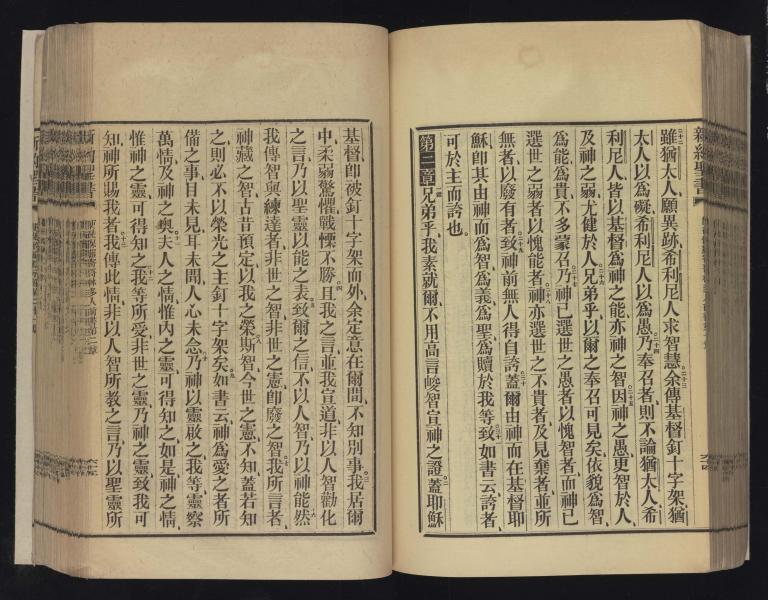 新約聖書
雖猶太人願異跡希利尼人求智慧余傳基督釘十字架猶
太人以爲礙希利尼人以爲愚乃奉召者則不論猶太人希
利尼人皆以基督爲神之能亦神之智因神之愚更智於人
及神之弱尤健於人兄弟乎以爾之奉召可見矣依貌爲智
爲能爲貴不多蒙召乃神已選世之愚者以愧智者而神已
選世之弱者以愧能者神亦選世之不貴者及見棄者並所
無者以廢有者致神前無人得自誇蓋爾由神而在基督耶
穌卽其由神而爲智爲義爲聖爲贖於我等致如書云誇者
可於主而誇也
第二章兄弟乎我素就爾不用高言峻智宣神之證蓋耶穌
基督卽被釘十字架而外余定意在爾間不知別事我居爾
中柔弱驚懼戰慄不勝且我之言並我宣道非以人智勸化
之言乃以聖靈以能之表致爾之信不以人智乃以神能然
我傳智與練達者非世之智非世之憲卽廢之智我所言者
神藏之智古昔預定以我之榮斯智今世之憲不知蓋若知
之則必不以榮光之主釘十字架矣如書云神爲愛之者所
備之事目未見耳未聞人心未念乃神以靈啟之我等靈察
萬情及神之奧夫人之情惟內之靈可得知之如是神之情
惟神之靈可得知之我等所愛非世之靈乃神之靈致我可
知神所賜我者我傳此情非以人智所教之言乃以聖靈所
新約聖書